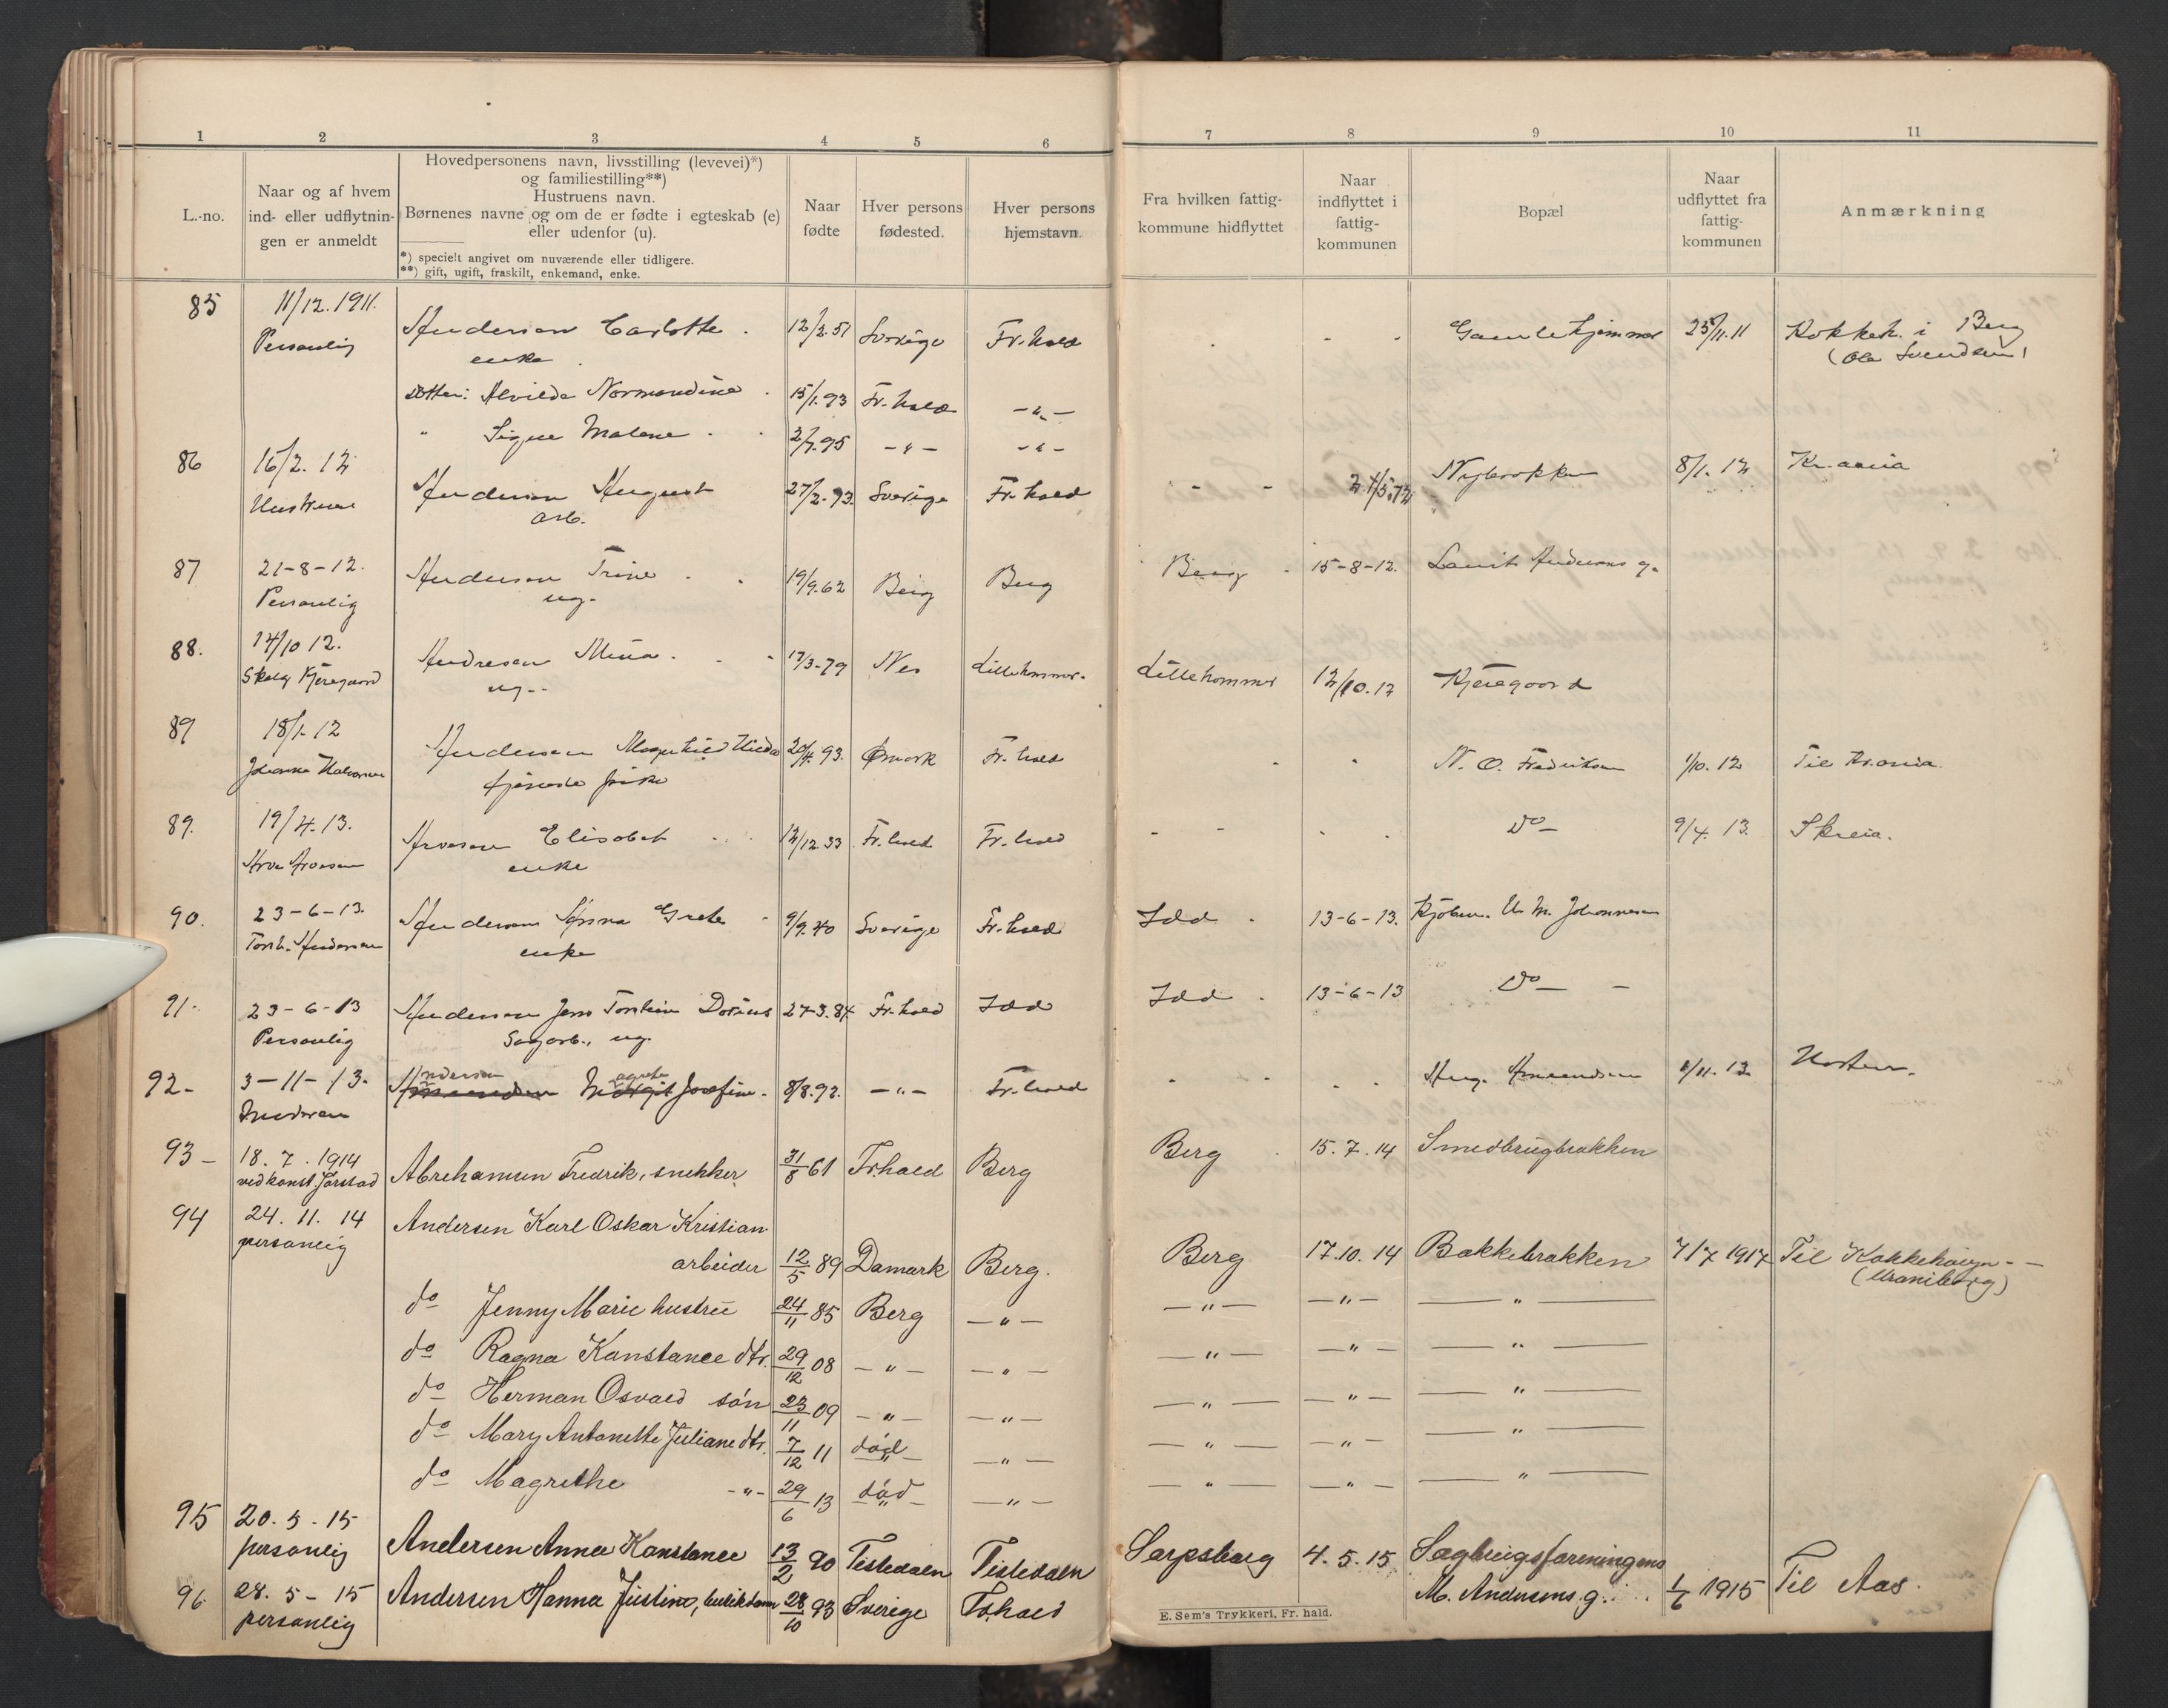 1 2 3 4 5 6 7 8 9 10 11
L.-no.
Naar og af hvem
ind- eller udflytnin-
gen er anmeldt
Hovedpersonens navn, livsstilling (levevei)*)
og familiestilling**)
Hustruens navn.
Børnenes navne og om de er fødte i egteskab (e)
eller udenfor (u).
*) specielt angivet om nuværende eller tidligere.
**) gift, ugift, fraskilt, enkemand, enke.
Naar
fødte
Hver persons
fødested.
Hver persons
hjemstavn.
Fra hvilken fattig-
kommune hidflyttet
Naar
indflyttet i
fattig-
kommunen
Bopæl
Naar
udflyttet fra
fattig-
kommunen
Anmærkning
85 11/12. 1911. Andersen Carlotte 12/2.51 Sverige Fr.hald Gamlehjemmet 25/11.11 Kokkeh. i Berg
Personlig enke (Ole Svendsen)
Datter: Alvilde Normandine 15/1.93 Fr.hald -"-
" Signe Malene 2/7.95 -"- -"-
86 16/2. 12 Andersen August 27/2-93. Sverige Fr.hald - - Nybrakken 8/1. 12 Kr.ania
Hustruen arb.
87 21-8-12. Andersen Trine 19/9.62 Berg Berg Berg 15-8-12. Laurits Andersens g.
Personlig ug.
88. 14/10 12. Andresen Mina 17/3-79 Nes Lillehammer. Lillehammer 12/10.12 Kjeregaard
Skoleg Kjeregaard ug.
89 18/1. 12 Andersen 20/4.93. Ømark Fr.hald N. O. Fredriksen 1/10.12 Til Kr.ania.
Johanne Halvorsen tjeneste pike
89. 19/4.13. Arvesen Elisabet 12/12.33 Fr.hald Fr.hald - - Do 9/4. 13. Skreia.
Arve Arvesen enke
90. 23-6-13. Andersen Anna Grete 9/9.40 Sverige Fr.hald Idd 13-6-13. Kjøbm. Johannesen
Torst. Andersen enke
91. 23-6-13 Andersen Jens Torstein Dorius 27-3.84 Fr.hald Idd Idd 13-6-13 Do -
Personlig Sagarb., ug.
92- 3-11-13. Andersen Josefine. 8/8.92. -"- Fr.hald Aug. Amundsen 1/11.13
93- 18. 7. 1914 Abrahamsen Fredrik, snekker 31/8 61 Fr.hald Berg Berg 15.7.14 Smedbrugbrakken
ved konst. Jorstad
94 24. 11. 14 Andersen Karl Oskar Kristian
personlig arbeider 12/5 89 Damark Berg. Berg 17.10.14 Bakkebrakken 7/7 1917 Til Kokkehaugen
(Uraniborg)
do Jenny Marie hustru 24/11 85 Berg -"- -"- -"- -"-
do Ragna Konstance dtr. 29/12 08 -"- -"- -"- -"- -"-
do Herman Osvald søn 23/11 09 -"- -"- -"- -"- -"-
do Mary Antonette Juliane dtr. 7/12 11 død -"- -"- -"- -"-
do Magrethe -"- 29/6 13 død -"- -"- -"- -"-
95 20. 5. 15 Andersen Anna Konstance 13/2 90 Tistedalen Tistedalen Sarpsborg 4. 5. 15 Sagbrugsforeningens
personlig
96. 28. 5 - 15 Andersen Hanna Justine, butikdame 28/10 93 Sverige Fr.hald M. Andersens g. 1/6 1915 Til Aas.
personlig
E. Sem's Trykkeri, Fr. hald.